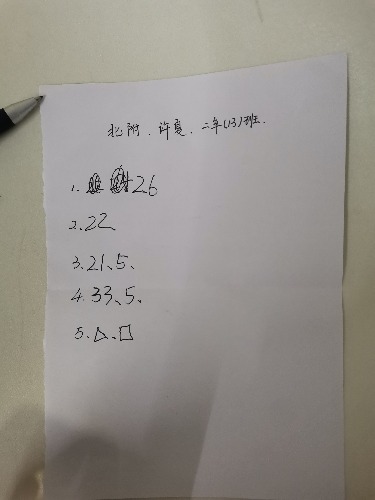 北附. 许夏. 二年(13)班.
1. 26
2. 22
3. 21、5、
4. 33、5、
5、△、□